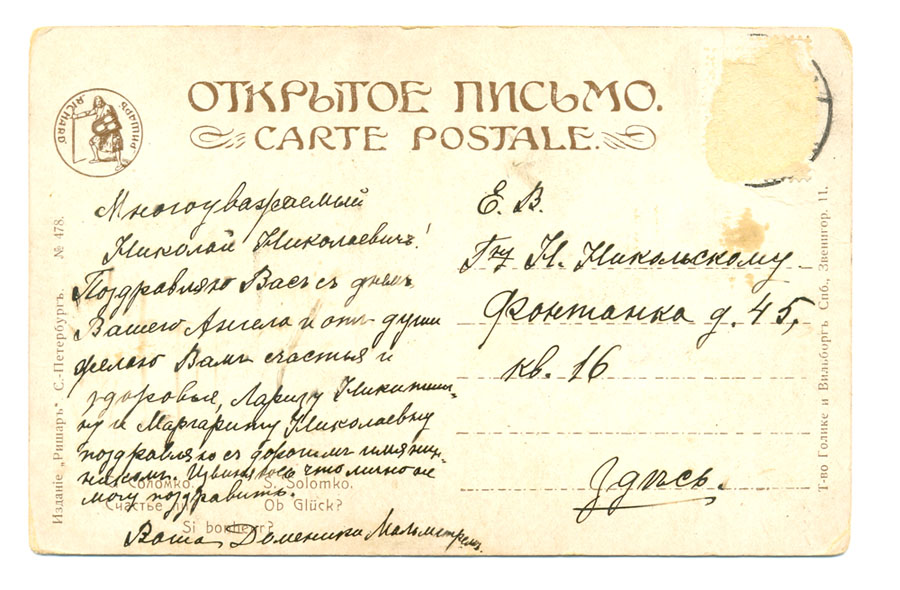 ОТКРЫТОЕ ПИСЬМО.
CARTE POSTALE.
RICHARD
РИШАРЪ
Многоуважаемый
Николай Николаевичъ!
Поздравляю Васъ съ днемъ
Вашего Ангела и отъ души
желаю Вамъ счастья и
здоровья, Ларизу Никитиш-
ну и Маргариту Николаевну
поздравляю съ дорогимъ имянин-
никомъ. Извиняюсь что лично не
могу поздравить.
Ваша Доменика Мальмстремъ
Е. В.
Г-ну Н. Никольскому
Фонтанка д. 45,
кв. 16
Здѣсь.
С. Соломко.
S. Solomko.
Счастье ли?
Ob Glück?
Si bonheur?
Изданіе „Ришаръ" С.-Петербургъ. № 478.
Т-во Голике и Вильборгъ. Спб., Звенигор. 11.